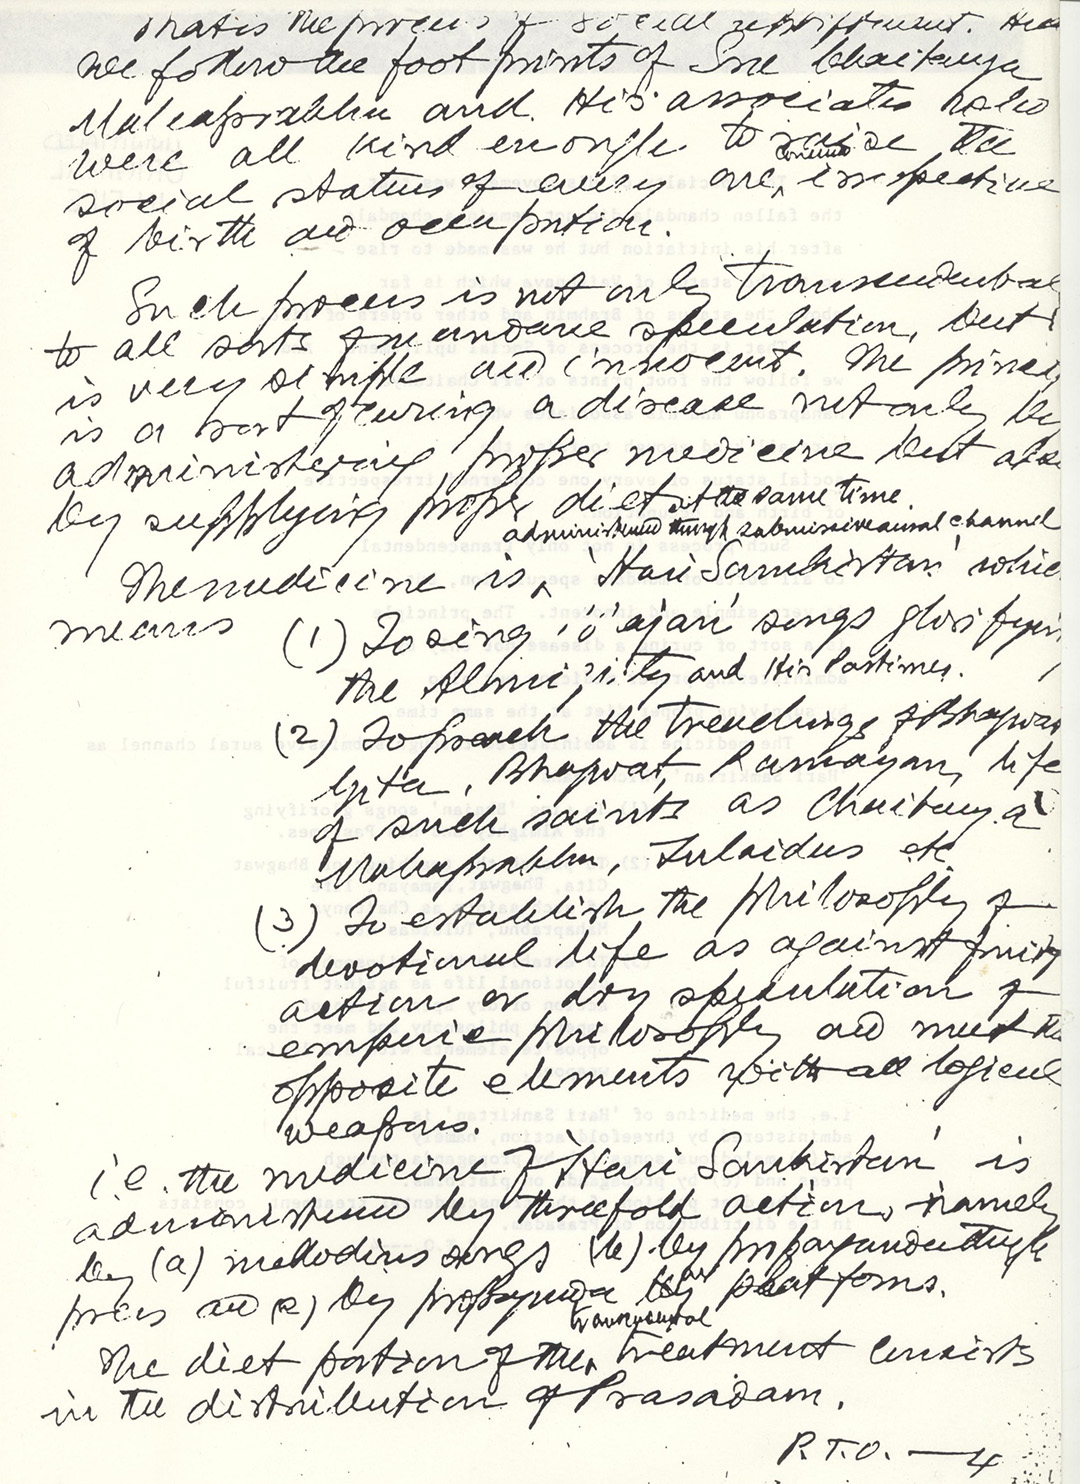 That is the process of social upliftment. And
we follow the foot prints of Sree Chaitanya
Mahaprabhu and His associates who
were all kind enough to raise the
social status of every one concerned, irrespective
of birth and occupation.
Such process is not only transcendental
to all sorts of mundane speculation, but
is very simple and innocent. The princi
is a sort of curing a disease not only by
administering proper medicine but also
by supplying proper diet at the same time
administered through submissive aural channel
The medicine is 'Hari Samkirtan' which
means (1) To sing 'Bhajan' songs glorifying
the Almighty and His Pastimes.
(2) To preach the teachings of Bhagwat
Gita, Bhagwat, Ramayan, life
of such saints as Chaitanya
Mahaprabhu, Tulsidas etc
(3) To establish the philosophy of
devotional life as against fruity
action or dry speculation of
empiric philosophy and meet the
opposite elements with all logical
weapons.
i.e. the medicine of 'Hari Sankirtan' is
administered by threefold action, namely
by (a) mellodius songs (b) by propaganda through
press and (c) by propaganda by platforms.
The diet portion of the transcendental treatment consists
in the distribution of Prasadam.
P.T.O. — 4